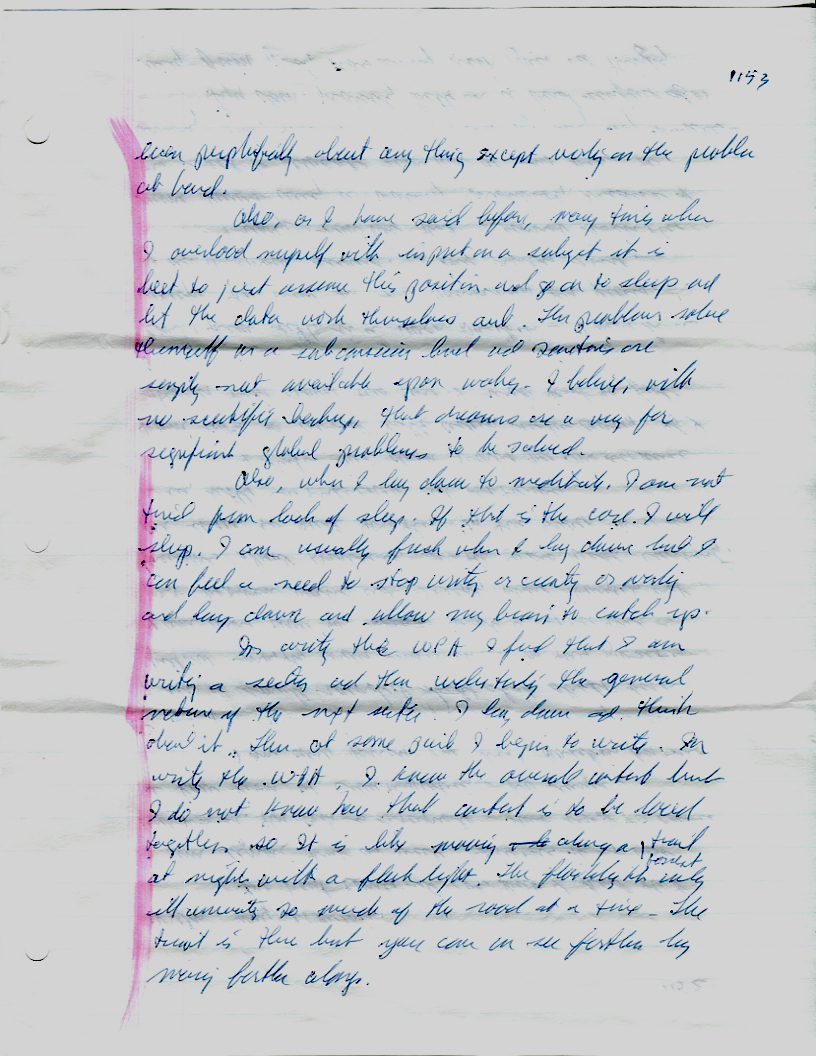 1153
even peripherally about any thing except working on the problem
at hand.
Also, as I have said before, many times when
I overload myself with input on a subject it is
best to just assume this position and go on to sleep and
let the data work themselves out. The problems solve
themself on a subconscious level and solutions are
simply not available upon waking. I believe, with
no scientific backup, that dreams are a way for
significant global problems to be solved.
Also, when I lay down to meditate. I am not
tired from lack of sleep. If that is the case I will
sleep. I am usually fresh when I lay down but I
can feel a need to stop writing or or working
and lay down and allow my brain to catch up.
In writing the WPA I find that I am
writing a section and then understanding the general
nature of the next section. I lay down and think
about it. Then at some point I begin to write. In
writing the WPA, I know the overall content but
I do not know how that content is to be
together so it is like moving along a forest trail
at night with a flash light. The flashlight only
illuminates so much of the road at a time. The
trail is there but you can on see farther by
moving farther along.